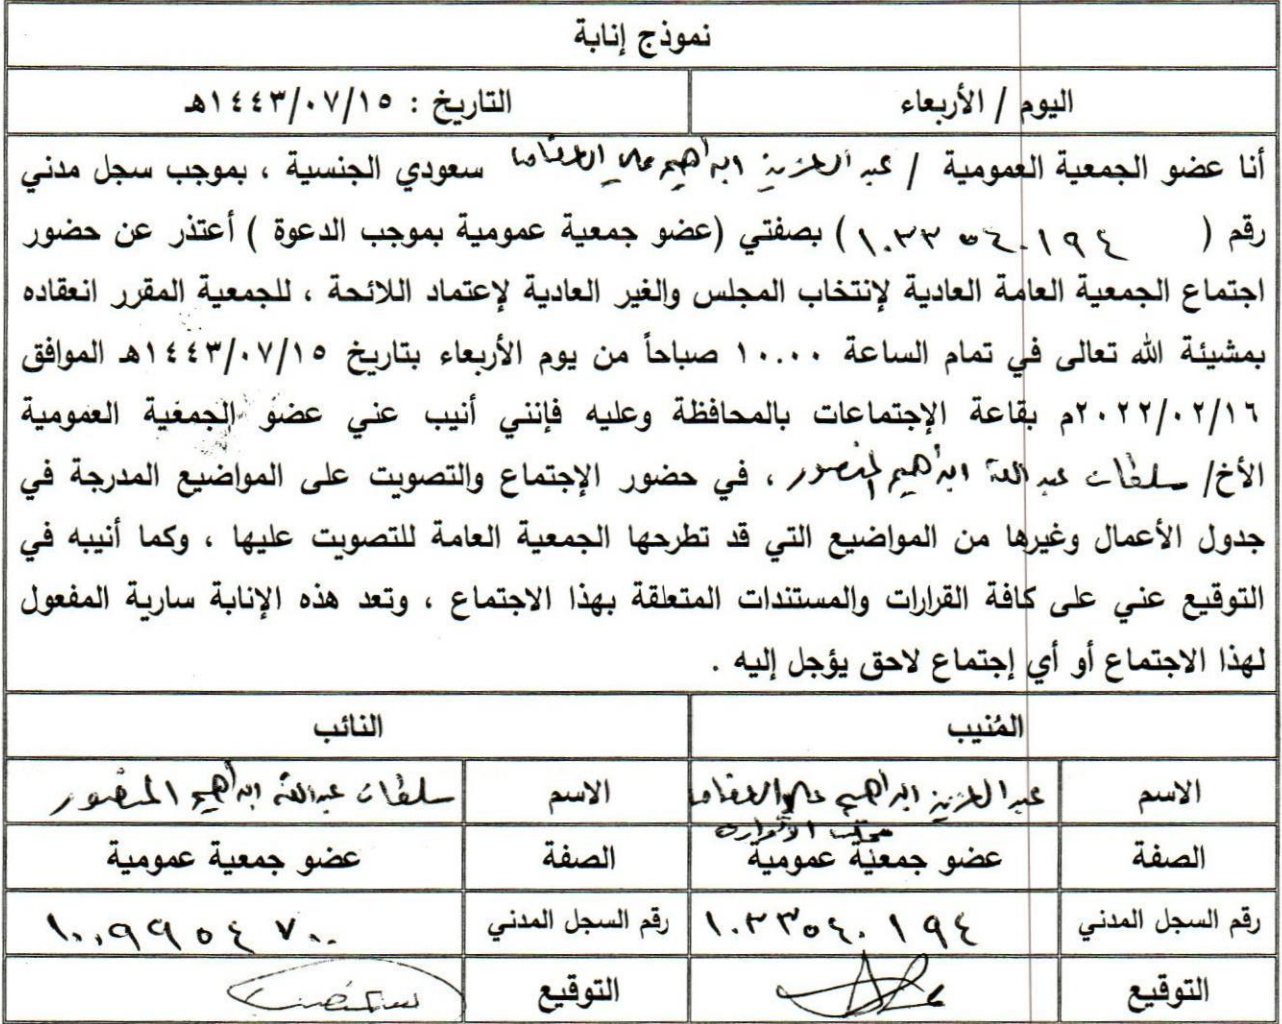 نموذج إنابة
اليوم / الأربعاء
التاريخ : ١٤٤٣/٠٧/١٥هـ
أنا عضو الجمعية العمومية / عبد العزيز ابراهيم علي سعودي الجنسية ، بموجب سجل مدني
رقم ( ١٠٣٣٥٤٠١٩٤ ) بصفتي (عضو جمعية عمومية بموجب الدعوة ) أعتذر عن حضور
اجتماع الجمعية العامة العادية لإنتخاب المجلس والغير العادية لإعتماد اللائحة ، للجمعية المقرر انعقاده
بمشيئة الله تعالى في تمام الساعة ١٠.٠٠ صباحاً من يوم الأربعاء بتاريخ ١٤٤٣/٠٧/١٥هـ الموافق
٢٠٢٢/٠٢/١٦م بقاعة الإجتماعات بالمحافظة وعليه فإنني أنيب عني عضو الجمعية العمومية
الأخ/ سلطان عبدالله ابراهيم المنصور ، في حضور الإجتماع والتصويت على المواضيع المدرجة في
جدول الأعمال وغيرها من المواضيع التي قد تطرحها الجمعية العامة للتصويت عليها ، وكما أنيبه في
التوقيع عني على كافة القرارات والمستندات المتعلقة بهذا الاجتماع ، وتعد هذه الإنابة سارية المفعول
لهذا الاجتماع أو أي إجتماع لاحق يؤجل إليه .
المُنيب
النائب
الاسم
عبد العزيز ابراهيم علي
الاسم
سلطان عبدالله ابراهيم المنصور
الصفة
عضو جمعية عمومية
الصفة
عضو جمعية عمومية
رقم السجل المدني
١٠٣٣٥٤٠١٩٤
رقم السجل المدني
١٠٠٩٩٥٤٧٠٠
التوقيع
التوقيع